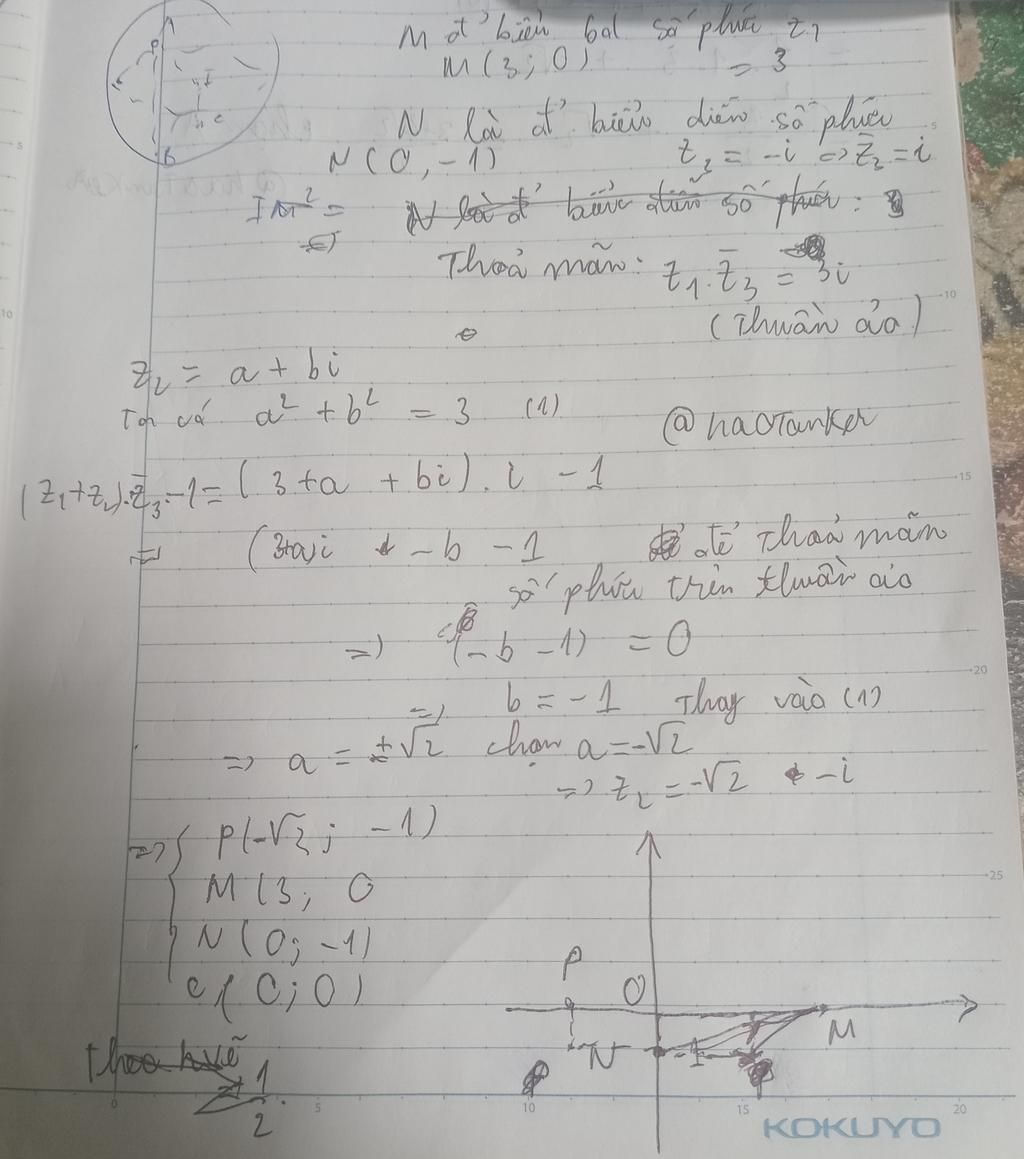 M đ' biểu bd số phức z₁
M(3; 0) = 3
N là đ' biểu diễn số phức
N(0, -1) z₃ = -i => z̄₃ = i
IM² =
N là đ' biểu diễn số phức:
Thoả mãn: z₁.z̄₃ = 3i
(Thuần ảo)
z₂ = a + bi
Ta có a² + b² = 3 (1)
@haoTanker
(z₁+z₂).z̄₃ - 1 = (3+a + bi). i - 1
= (3+a)i - b - 1 để thoả mãn
số phức trên thuần ảo
=> (-b - 1) = 0
=> b = -1 Thay vào (1)
=> a = ±√2 chọn a = -√2
=> z₂ = -√2 - i
=> { P(-√2; -1)
M(3; 0
N(0; -1)
O(0; 0)
P
O
M
N
1
2
KOKUYO
5
10
15
20
25
10
0
5
10
15
20